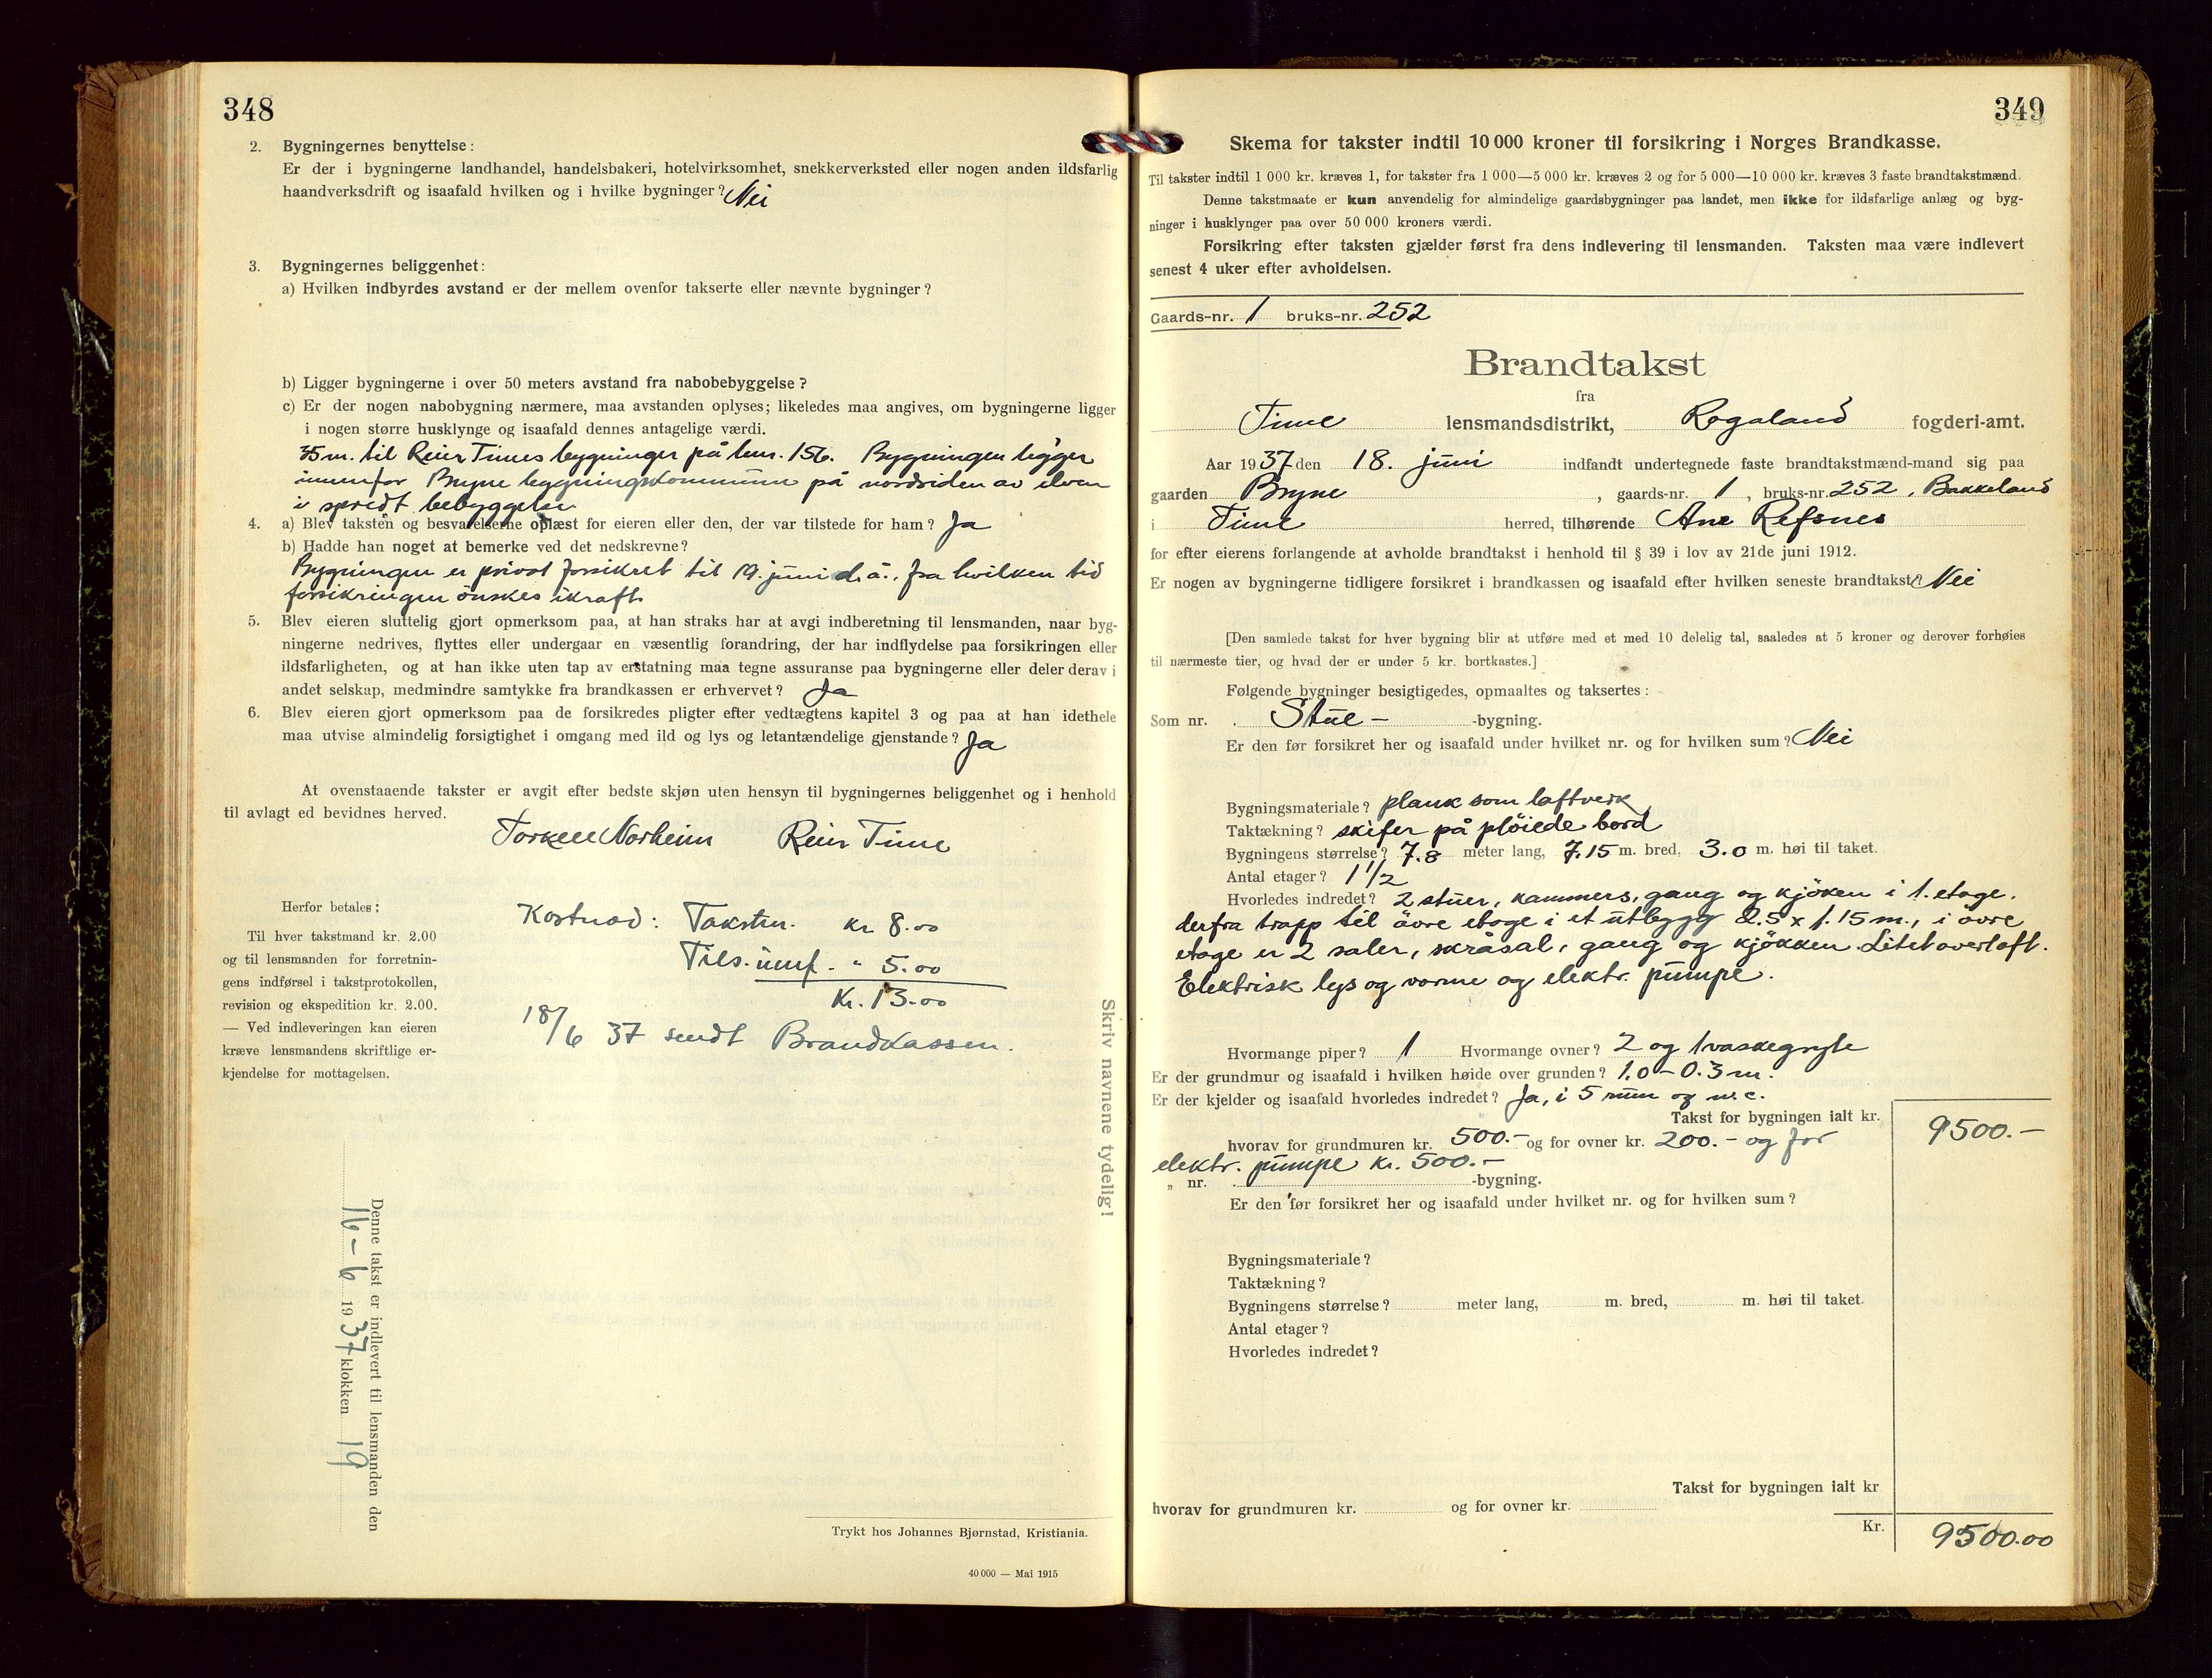 348
2. Bygningernes benyttelse:
Er der i bygningerne landhandel, handelsbakeri, hotelvirksomhet, snekkerverksted eller nogen anden ildsfarlig
haandverksdrift og isaafald hvilken og i hvilke bygninger? Nei
3. Bygningernes beliggenhet:
a) Hvilken indbyrdes avstand er der mellem ovenfor takserte eller nævnte bygninger?
b) Ligger bygningerne i over 50 meters avstand fra nabobebyggelse?
c) Er der nogen nabobygning nærmere, maa avstanden oplyses; likeledes maa angives, om bygningerne ligger
i nogen større husklynge og isaafald dennes antagelige værdi.
35 m. til Reier Times bygninger på bnr. 156. Bygningen ligger
innenfor Bryne bygningskommune på nordsiden av elven
i spredt bebyggelse
4. a) Blev taksten og besvarelserne oplæst for eieren eller den, der var tilstede for ham? Ja
b) Hadde han noget at bemerke ved det nedskrevne?
Bygningen er privat forsikret til 19. juni d.å., fra hvilken tid
forsikringen önskes ikraft.
5. Blev eieren sluttelig gjort opmerksom paa, at han straks har at avgi indberetning til lensmanden, naar byg-
ningerne nedrives, flyttes eller undergaar en væsentlig forandring, der har indflydelse paa forsikringen eller
ildsfarligheten, og at han ikke uten tap av erstatning maa tegne assuranse paa bygningerne eller deler derav i
andet selskap, medmindre samtykke fra brandkassen er erhvervet? Ja
6. Blev eieren gjort opmerksom paa de forsikredes pligter efter vedtægtens kapitel 3 og paa at han idethele
maa utvise almindelig forsigtighet i omgang med ild og lys og letantændelige gjenstande? Ja
At ovenstaaende takster er avgit efter bedste skjøn uten hensyn til bygningernes beliggenhet og i henhold
til avlagt ed bevidnes herved.
Torkell Norheim Reier Time
Herfor betales:
Til hver takstmand kr. 2.00
og til lensmanden for forretnin-
gens indførsel i takstprotokollen,
revision og ekspedition kr. 2.00.
— Ved indleveringen kan eieren
kræve lensmandens skriftlige er-
kjendelse for mottagelsen.
Kostnad: Taksten. kr 8.00
Tils. innf. " 5.00
Kr. 13.00
18/6 37 sendt Brandkassen.
Skriv navnene tydelig!
Denne takst er indlevert til lensmanden den
16-6 1937 klokken 19
Trykt hos Johannes Bjørnstad, Kristiania.
40 000 — Mai 1915
349
Skema for takster indtil 10 000 kroner til forsikring i Norges Brandkasse.
Til takster indtil 1 000 kr. kræves 1, for takster fra 1 000—5 000 kr. kræves 2 og for 5 000—10 000 kr. kræves 3 faste brandtakstmænd.
Denne takstmaate er kun anvendelig for almindelige gaardsbygninger paa landet, men ikke for ildsfarlige anlæg og byg-
ninger i husklynger paa over 50 000 kroners værdi.
Forsikring efter taksten gjælder først fra dens indlevering til lensmanden. Taksten maa være indlevert
senest 4 uker efter avholdelsen.
Gaards-nr. 1 bruks-nr. 252
Brandtakst
fra
Time lensmandsdistrikt, Rogaland fogderi-amt.
Aar 1937 den 18. juni indfandt undertegnede faste brandtakstmænd-mand sig paa
gaarden Bryne, gaards-nr. 1, bruks-nr. 252, Bakkeland
i Time herred, tilhørende Ane Refsnes
for efter eierens forlangende at avholde brandtakst i henhold til § 39 i lov av 21de juni 1912.
Er nogen av bygningerne tidligere forsikret i brandkassen og isaafald efter hvilken seneste brandtakst? Nei
[Den samlede takst for hver bygning blir at utføre med et med 10 delelig tal, saaledes at 5 kroner og derover forhøies
til nærmeste tier, og hvad der er under 5 kr. bortkastes.]
Følgende bygninger besigtigedes, opmaaltes og taksertes:
Som nr. Stue- -bygning.
Er den før forsikret her og isaafald under hvilket nr. og for hvilken sum? Nei
Bygningsmateriale? plank som laftverk
Taktækning? skifer på plöiede bord
Bygningens størrelse? 7.8 meter lang, 7.15 m. bred, 3.0 m. høi til taket.
Antal etager? 1 1/2
Hvorledes indredet? 2 stuer, kammers, gang og kjöken i 1. etage.
derfra trapp til övre etage i et utbygg 2.5 x 1.15 m., i övre
etage er 2 saler, skråsal, gang og kjökken. Litet overloft.
Elektrisk lys og varme og elektr. pumpe.
Hvormange piper? 1 Hvormange ovner? 2 og 1 vaskegryte
Er der grundmur og isaafald i hvilken høide over grunden? 1.0 - 0.3 m.
Er der kjelder og isaafald hvorledes indredet? Ja, i 5 rum og w.c.
Takst for bygningen ialt kr. 9500.-
hvorav for grundmuren kr. 500.- og for ovner kr. 200.- og for
elektr. pumpe kr. 500.-
„ nr. -bygning.
Er den før forsikret her og isaafald under hvilket nr. og for hvilken sum?
Bygningsmateriale?
Taktækning?
Bygningens størrelse? meter lang, m. bred, m. høi til taket.
Antal etager?
Hvorledes indredet?
Takst for bygningen ialt kr
hvorav for grundmuren kr. og for ovner kr.
Kr. 9500.00